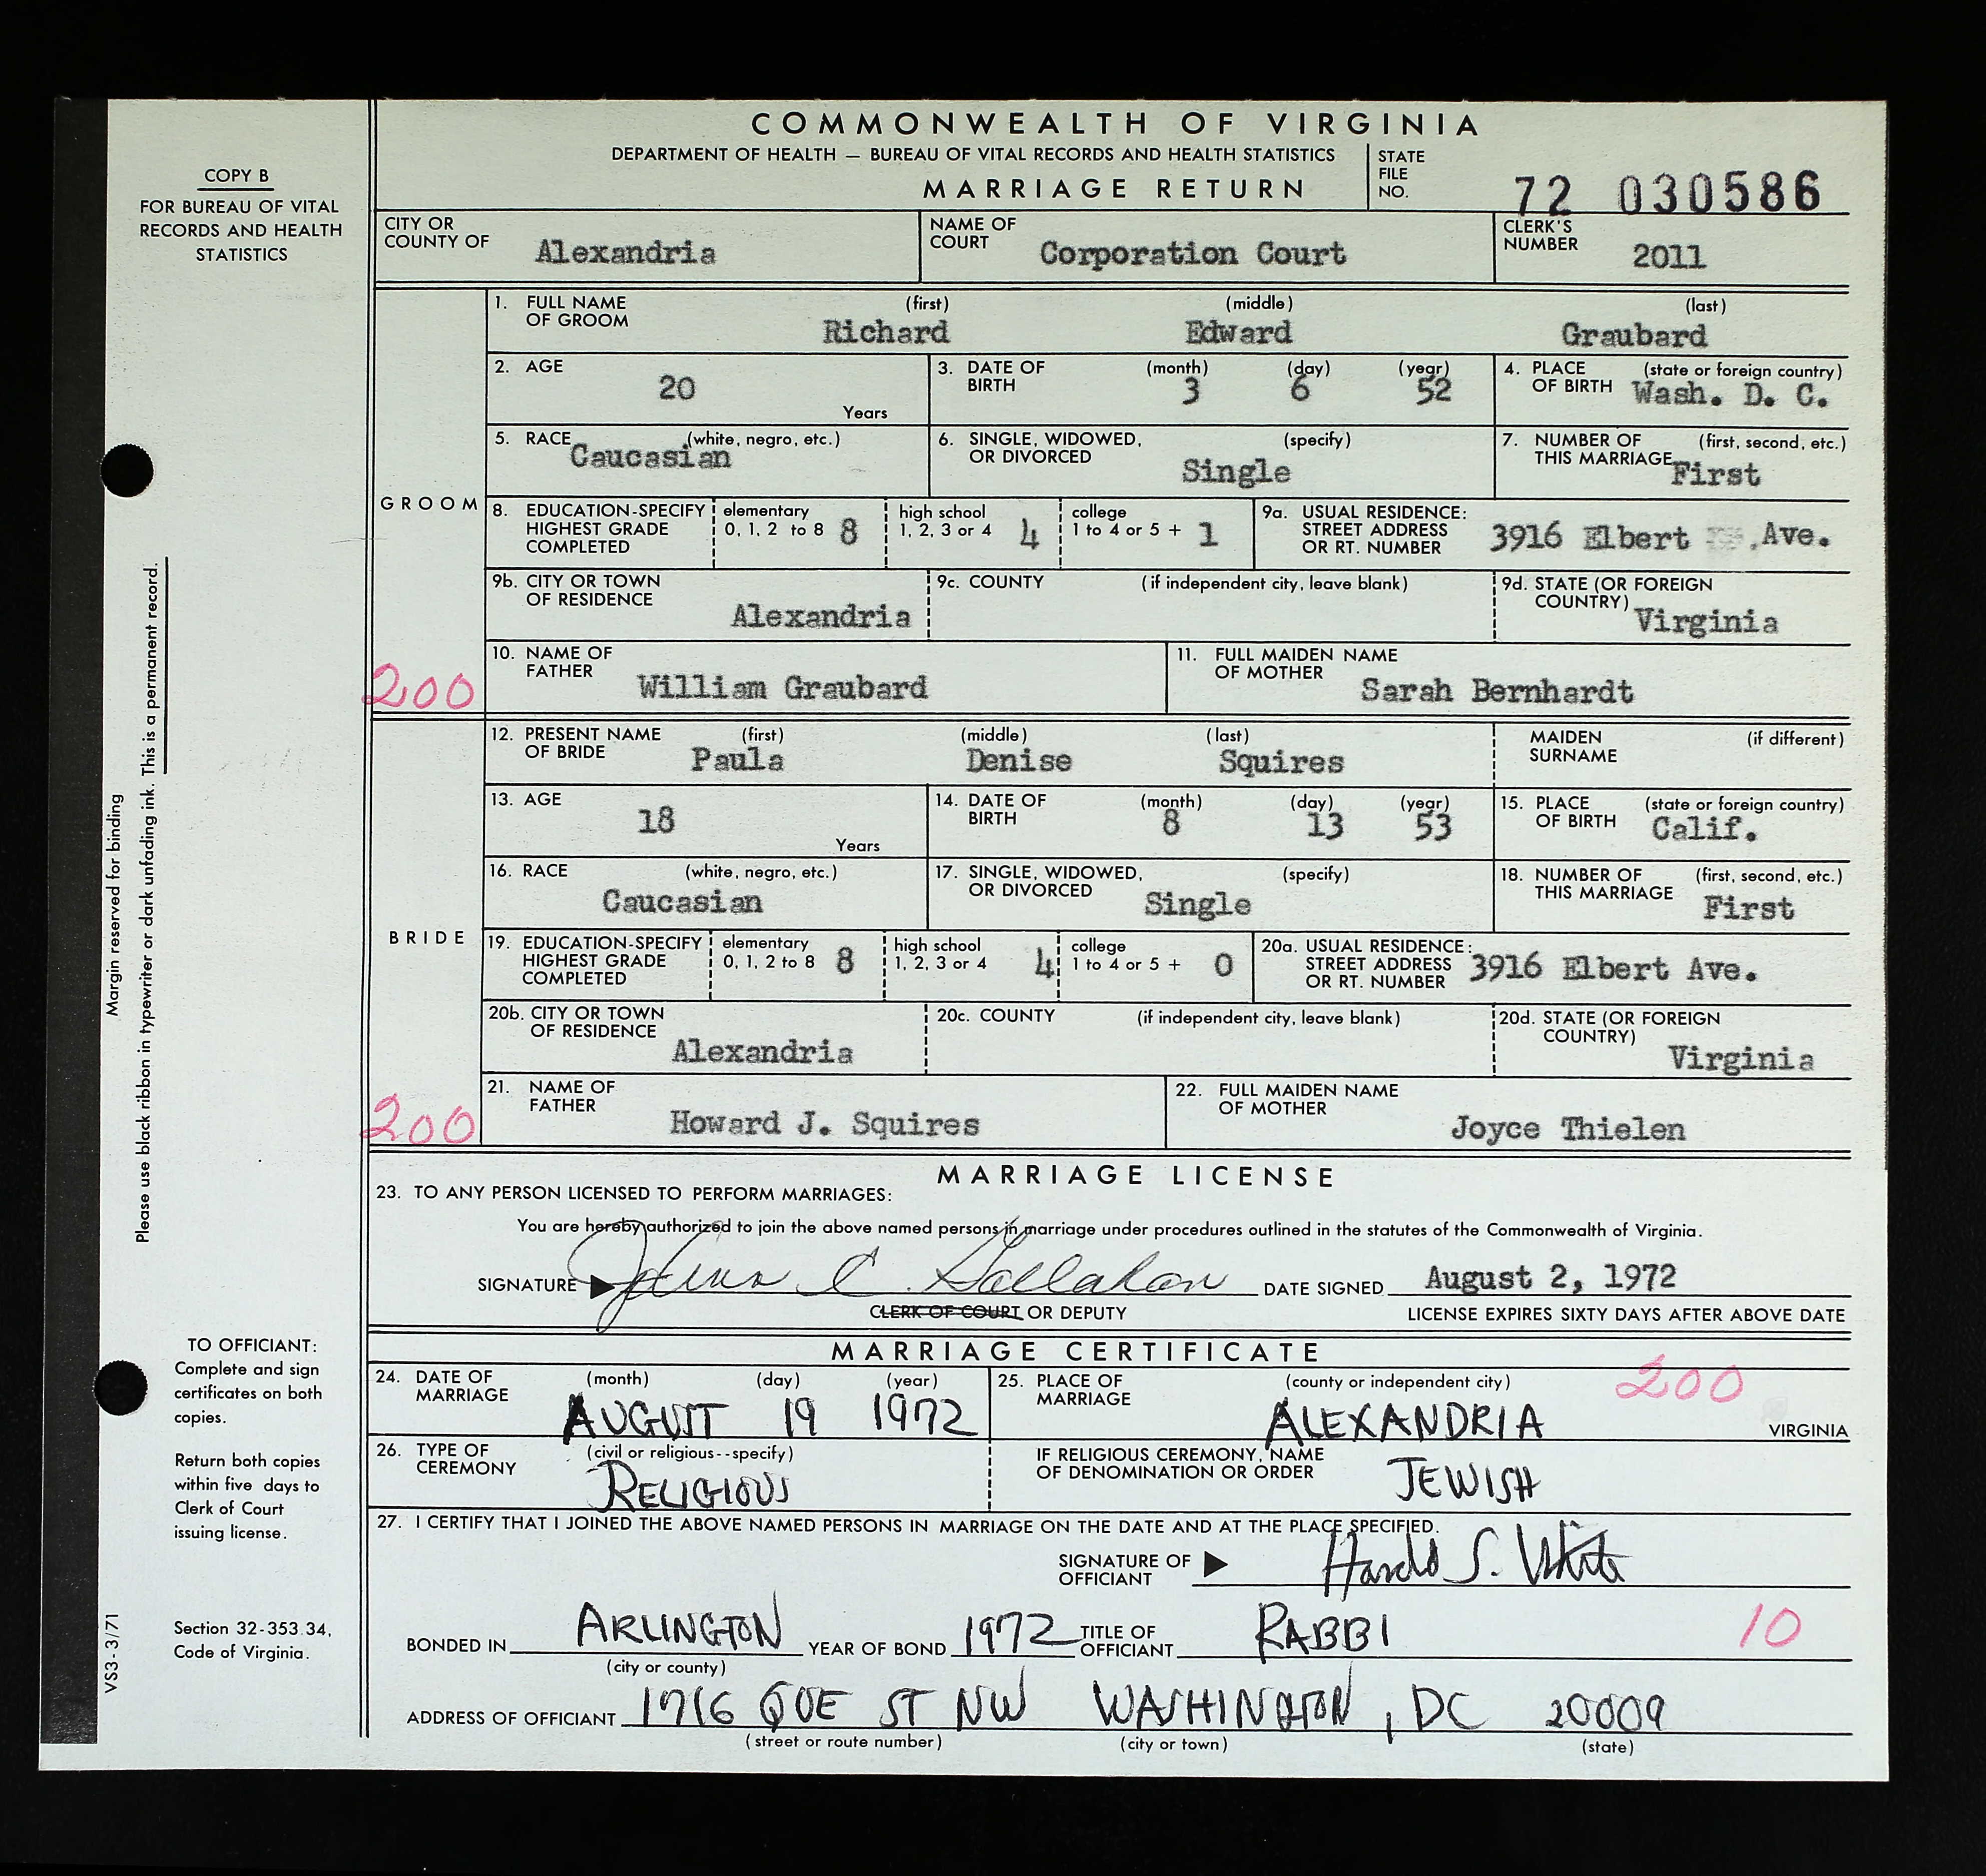 COPY B
FOR BUREAU OF VITAL
RECORDS AND HEALTH
STATISTICS
COMMONWEALTH OF VIRGINIA
DEPARTMENT OF HEALTH — BUREAU OF VITAL RECORDS AND HEALTH STATISTICS
MARRIAGE RETURN
STATE FILE NO. 72 030586
CITY OR COUNTY OF Alexandria
NAME OF COURT Corporation Court
CLERK'S NUMBER 2011
GROOM
1. FULL NAME OF GROOM (first) Richard (middle) Edward (last) Graubard
2. AGE 20 Years
3. DATE OF BIRTH (month) 3 (day) 6 (year) 52
4. PLACE OF BIRTH (state or foreign country) Wash. D. C.
5. RACE (white, negro, etc.) Caucasian
6. SINGLE, WIDOWED, OR DIVORCED (specify) Single
7. NUMBER OF THIS MARRIAGE (first, second, etc.) First
8. EDUCATION-SPECIFY HIGHEST GRADE COMPLETED elementary 0, 1, 2 to 8 8 high school 1, 2, 3 or 4 4 college 1 to 4 or 5 + 1
9a. USUAL RESIDENCE: STREET ADDRESS OR RT. NUMBER 3916 Elbert Ave.
9b. CITY OR TOWN OF RESIDENCE Alexandria
9c. COUNTY (if independent city, leave blank)
9d. STATE (OR FOREIGN COUNTRY) Virginia
10. NAME OF FATHER William Graubard
11. FULL MAIDEN NAME OF MOTHER Sarah Bernhardt
200
BRIDE
12. PRESENT NAME OF BRIDE (first) Paula (middle) Denise (last) Squires
MAIDEN SURNAME (if different)
13. AGE 18 Years
14. DATE OF BIRTH (month) 8 (day) 13 (year) 53
15. PLACE OF BIRTH (state or foreign country) Calif.
16. RACE (white, negro, etc.) Caucasian
17. SINGLE, WIDOWED, OR DIVORCED (specify) Single
18. NUMBER OF THIS MARRIAGE (first, second, etc.) First
19. EDUCATION-SPECIFY HIGHEST GRADE COMPLETED elementary 0, 1, 2 to 8 8 high school 1, 2, 3 or 4 4 college 1 to 4 or 5 + 0
20a. USUAL RESIDENCE: STREET ADDRESS OR RT. NUMBER 3916 Elbert Ave.
20b. CITY OR TOWN OF RESIDENCE Alexandria
20c. COUNTY (if independent city, leave blank)
20d. STATE (OR FOREIGN COUNTRY) Virginia
21. NAME OF FATHER Howard J. Squires
22. FULL MAIDEN NAME OF MOTHER Joyce Thielen
200
MARRIAGE LICENSE
23. TO ANY PERSON LICENSED TO PERFORM MARRIAGES:
You are hereby authorized to join the above named persons in marriage under procedures outlined in the statutes of the Commonwealth of Virginia.
SIGNATURE C. DATE SIGNED August 2, 1972
CLERK OF COURT OR DEPUTY
LICENSE EXPIRES SIXTY DAYS AFTER ABOVE DATE
MARRIAGE CERTIFICATE
24. DATE OF MARRIAGE (month) AUGUST (day) 19 (year) 1972
25. PLACE OF MARRIAGE (county or independent city) ALEXANDRIA VIRGINIA
200
26. TYPE OF CEREMONY (civil or religious--specify) RELIGIOUS
IF RELIGIOUS CEREMONY, NAME OF DENOMINATION OR ORDER JEWISH
27. I CERTIFY THAT I JOINED THE ABOVE NAMED PERSONS IN MARRIAGE ON THE DATE AND AT THE PLACE SPECIFIED.
SIGNATURE OF OFFICIANT Harold S. White
BONDED IN ARLINGTON (city or county) YEAR OF BOND 1972 TITLE OF OFFICIANT RABBI
10
ADDRESS OF OFFICIANT 1716 QUE ST NW WASHINGTON, DC 20009
(street or route number) (city or town) (state)
Margin reserved for binding
Please use black ribbon in typewriter or dark unfading ink. This is a permanent record.
TO OFFICIANT:
Complete and sign
certificates on both
copies.
Return both copies
within five days to
Clerk of Court
issuing license.
Section 32-353.34,
Code of Virginia.
VS3-3/71